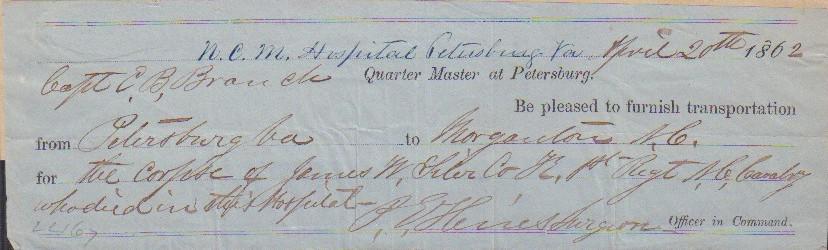 N. C. M. Hospital Petersburg Va April 20th 1862
Capt C. B. Branch Quarter Master at Petersburg.
Be pleased to furnish transportation
from Petersburg Va to Morganton N. C.
for the corpse of James W. Siler Co K. 1st Regt N. C. Cavalry
who died in this Hospital
Surgeon Officer in Command.